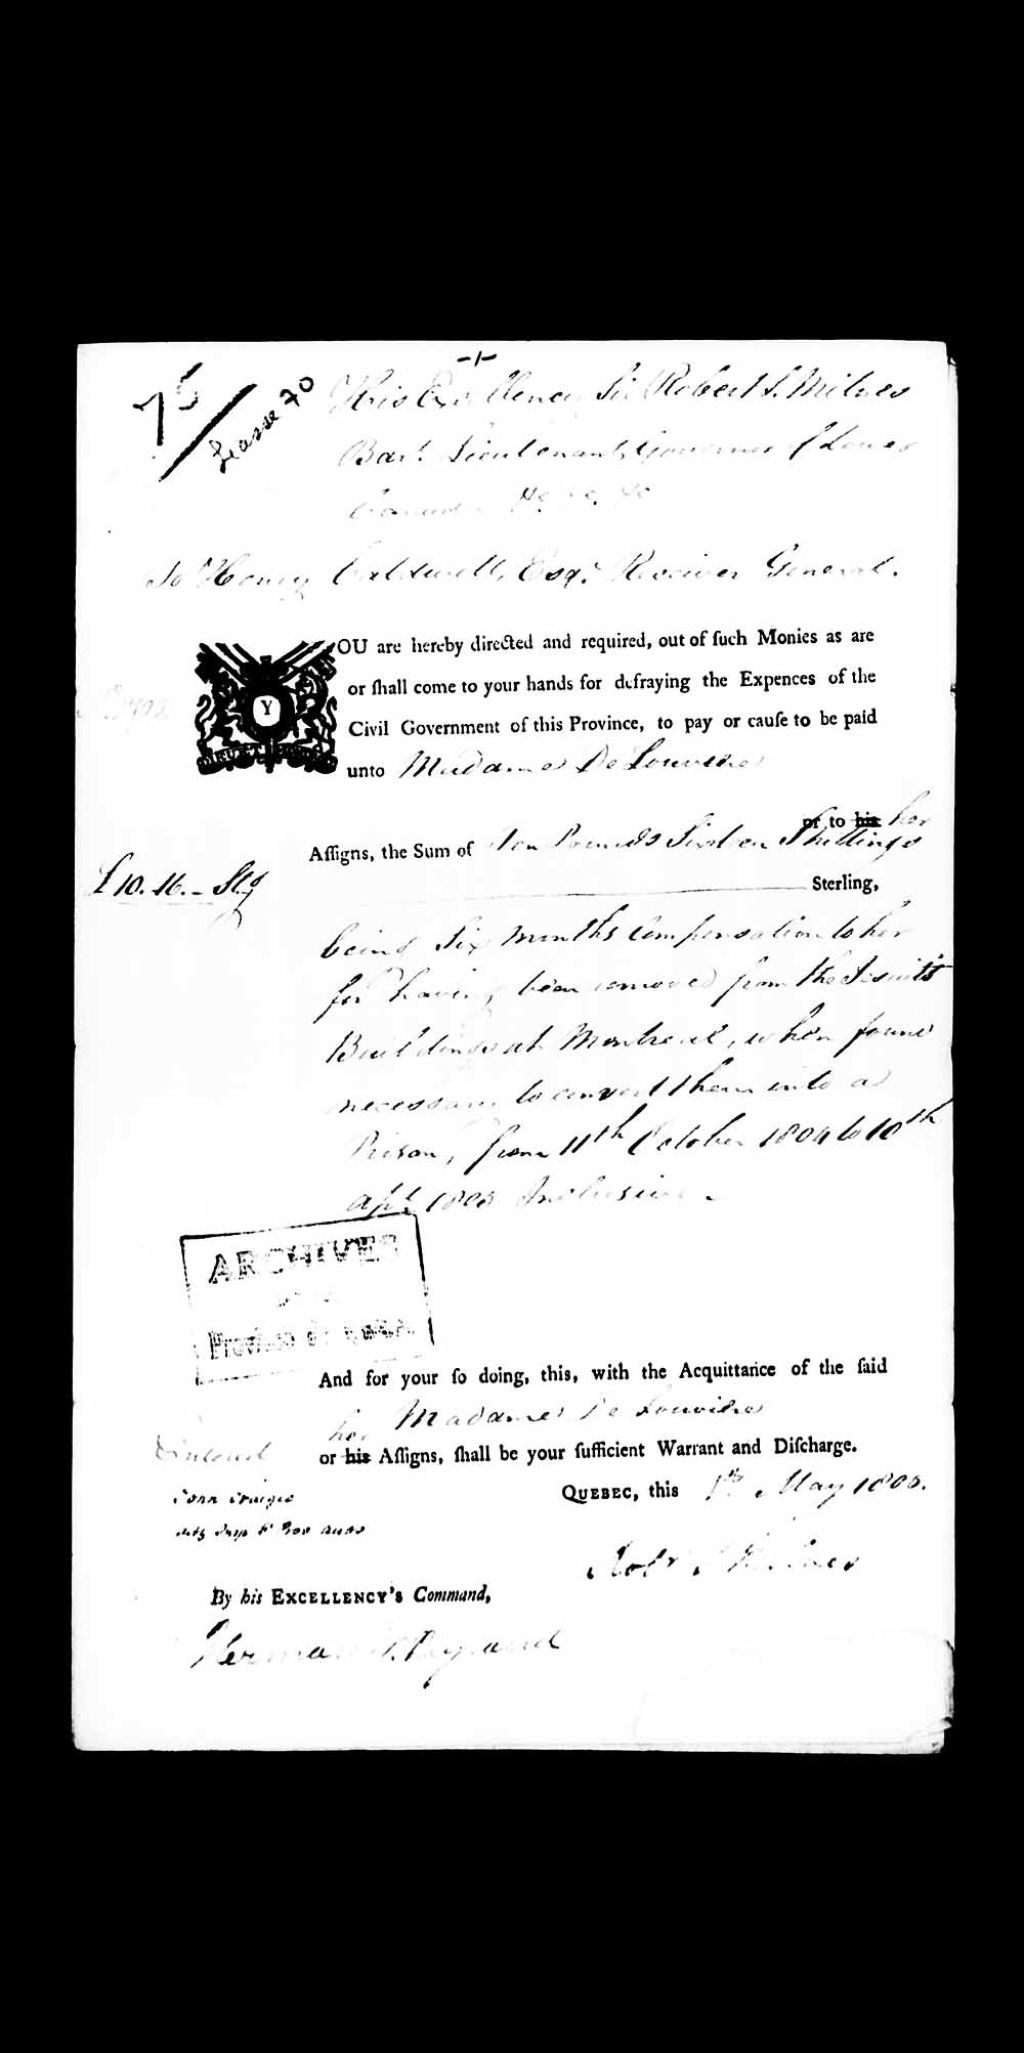 -1-
75
Liasse 70
His Excellency Sir Robert S. Milnes
Bart. Lieutenant Governor of Lower
Canada &c. &c. &c
To Henry Caldwell, Esqr. Receiver General.
YOU are hereby directed and required, out of ſuch Monies as are
or ſhall come to your hands for defraying the Expences of the
Civil Government of this Province, to pay or cauſe to be paid
unto Madame De Louviere
or to his her
Aſſigns, the Sum of Ten Pounds Sixteen Shillings
£10. 16. - Stg
Sterling,
being Six months Compensation to her
for having been removed from the Jesuits
Buildings at Montreal, when found
necessary to convert them into a
Prison, from 11th October 1804 to 10th
Apl. 1805 Inclusive.
ARCHIVES
Province
And for your ſo doing, this, with the Acquittance of the ſaid
Madame De Louviere
her
or his Aſſigns, ſhall be your ſufficient Warrant and Diſcharge.
Entered
John Craigie
QUEBEC, this 1st. May 1805.
Robt. S. Milnes
By his EXCELLENCY's Command,
Herman W. Ryland